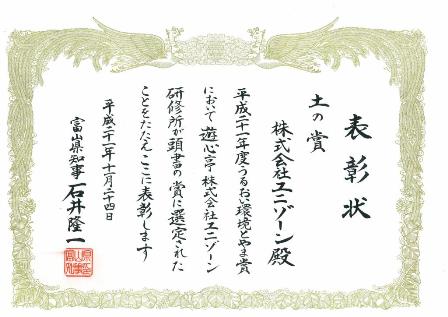 表彰状
土の賞
株式会社ユニゾーン殿
平成二十一年度うるおい環境とやま賞
において遊心亭株式会社ユニゾーン
研修所が頭書の賞に選定された
ことをたたえここに表彰します
平成二十一年十一月二十四日
富山県知事 石井隆一